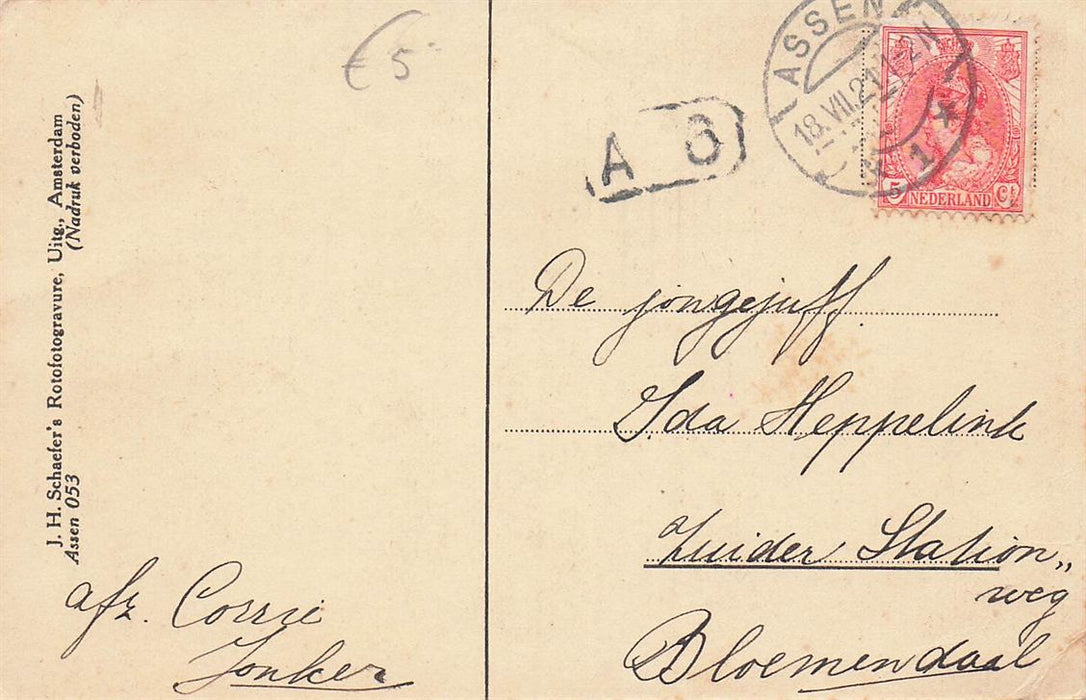 € 5-
J. H. Schaefer's Rotofotogravure, Uitg., Amsterdam
(Nadruk verboden)
Assen 053
afz. Corrie
Jonker
A 6
ASSEN
18.VII.21 1-2N
1
5 NEDERLAND Ct
De jongejuff.
Ida Heppelink
Zuider Station„
weg
Bloemendaal